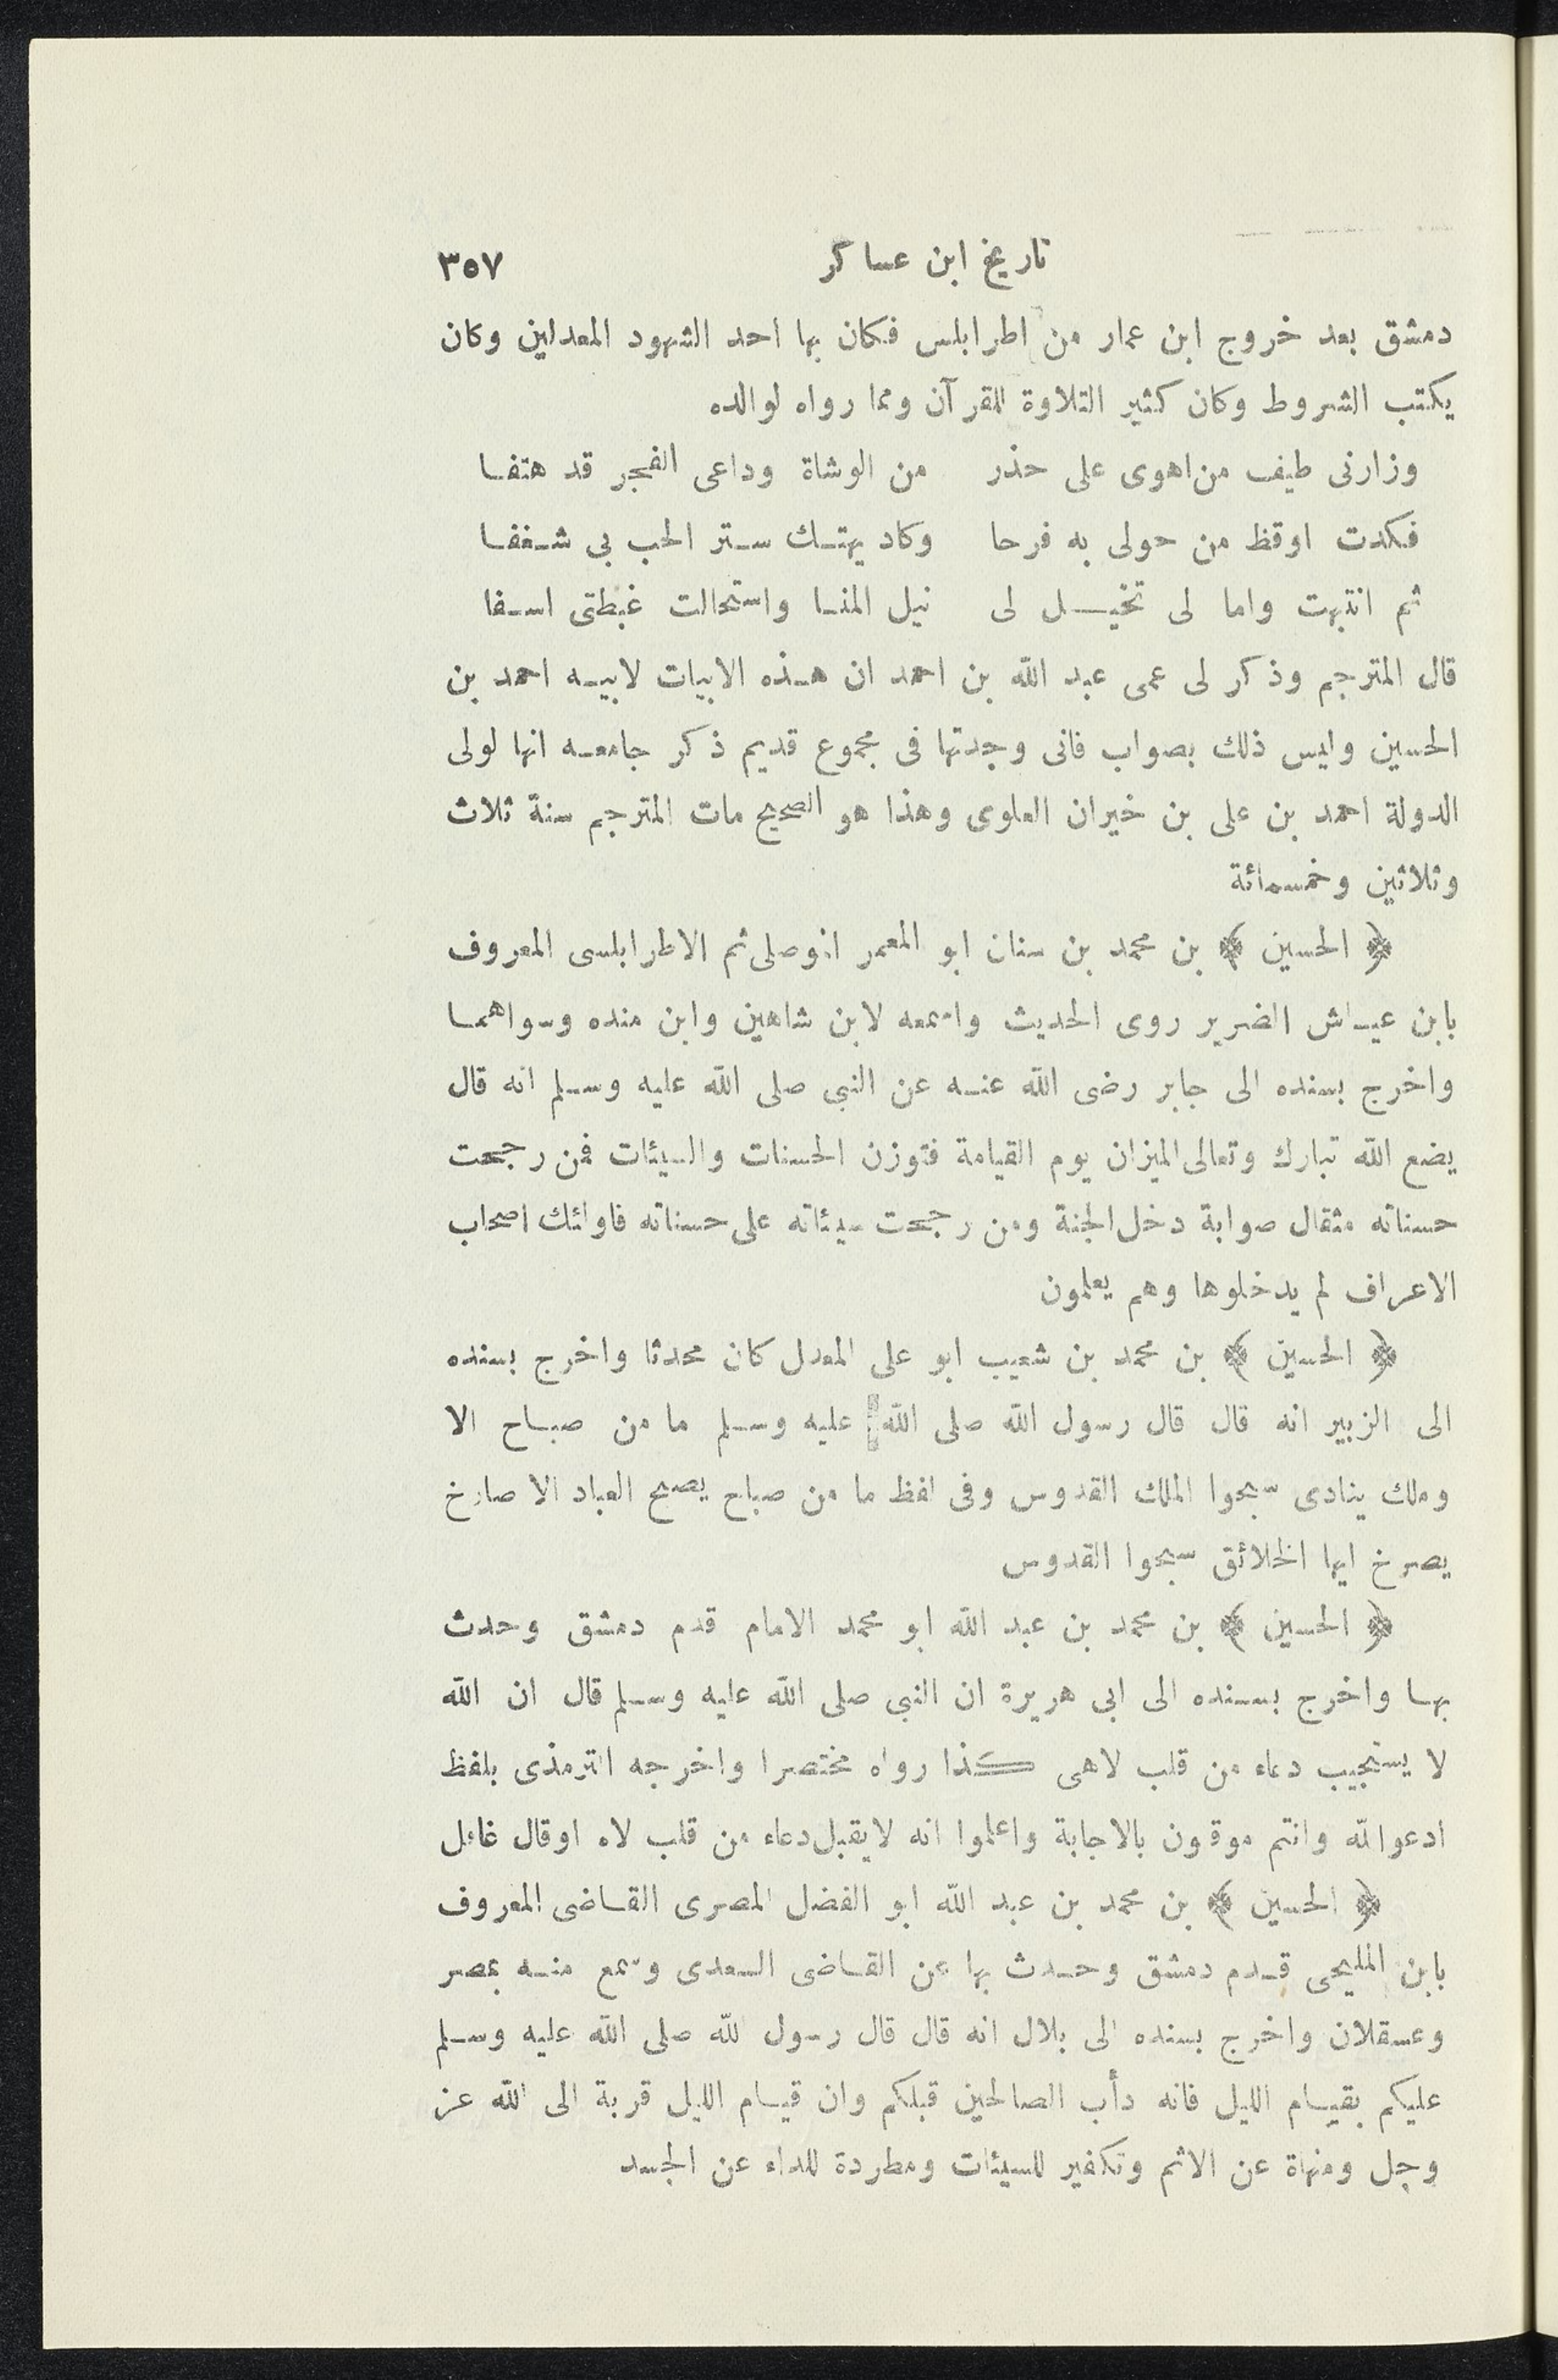 تاريخ ابن عساكر ٣٥٧
دمشق بعد خروج ابن عمار من اطرابلس فكان بها احد الشهود المعدلين وكان
يكتب الشروط وكان كثير التلاوة للقرآن ومما رواه لوالده
وزارنى طيف من اهوى على حذر من الوشاة وداعى الفجر قد هتفا
فكدت اوقظ من حولى به فرحا وكاد يهتك ستر الحب بى شغفا
ثم انتبهت واما لى تخيل لى نيل المنا واستحالت غبطتى اسفا
قال المترجم وذكر لى عمى عبد الله بن احمد ان هذه الابيات لابيه احمد بن
الحسين وليس ذلك بصواب فانى وجدتها فى مجموع قديم ذكر جامعه انها لولى
الدولة احمد بن على بن خيران العلوى وهذا هو الصحيح مات المترجم سنة ثلاث
وثلاثين وخمسمائة
﴿ الحسين ﴾ بن محمد بن سنان ابو المعمر الموصلى ثم الاطرابلسى المعروف
بابن عياش الضرير روى الحديث واسمعه لابن شاهين وابن منده وسواهما
واخرج بسنده الى جابر رضى الله عنه عن النبى صلى الله عليه وسلم انه قال
يضع الله تبارك وتعالى الميزان يوم القيامة فتوزن الحسنات والسيئات فمن رجحت
حسناته مثقال صوابة دخل الجنة ومن رجحت سيئاته على حسناته فاولئك اصحاب
الاعراف لم يدخلوها وهم يعلمون
﴿ الحسين ﴾ بن محمد بن شعيب ابو على المعدل كان محدثا واخرج بسنده
الى الزبير انه قال قال رسول الله صلى الله عليه وسلم ما من صباح الا
وملك ينادى سبحوا الملك القدوس وفى لفظ ما من صباح يصبح العباد الا صارخ
يصرخ ايها الخلائق سبحوا القدوس
﴿ الحسين ﴾ بن محمد بن عبد الله ابو محمد الامام قدم دمشق وحدث
بها واخرج بسنده الى ابى هريرة ان النبى صلى الله عليه وسلم قال ان الله
لا يستجيب دعاء من قلب لاهى كذا رواه مختصرا واخرجه الترمذى بلفظ
ادعوا الله وانتم موقنون بالاجابة واعلموا انه لايقبل دعاء من قلب لاه اوقال غافل
﴿ الحسين ﴾ بن محمد بن عبد الله ابو الفضل المصرى القاضى المعروف
بابن المليحى قدم دمشق وحدث بها عن القاضى السعدى وسمع منه بمصر
وعسقلان واخرج بسنده الى بلال انه قال قال رسول الله صلى الله عليه وسلم
عليكم بقيام الليل فانه دأب الصالحين قبلكم وان قيام الليل قربة الى الله عز
وجل ومنهاة عن الاثم وتكفير للسيئات ومطردة للداء عن الجسد